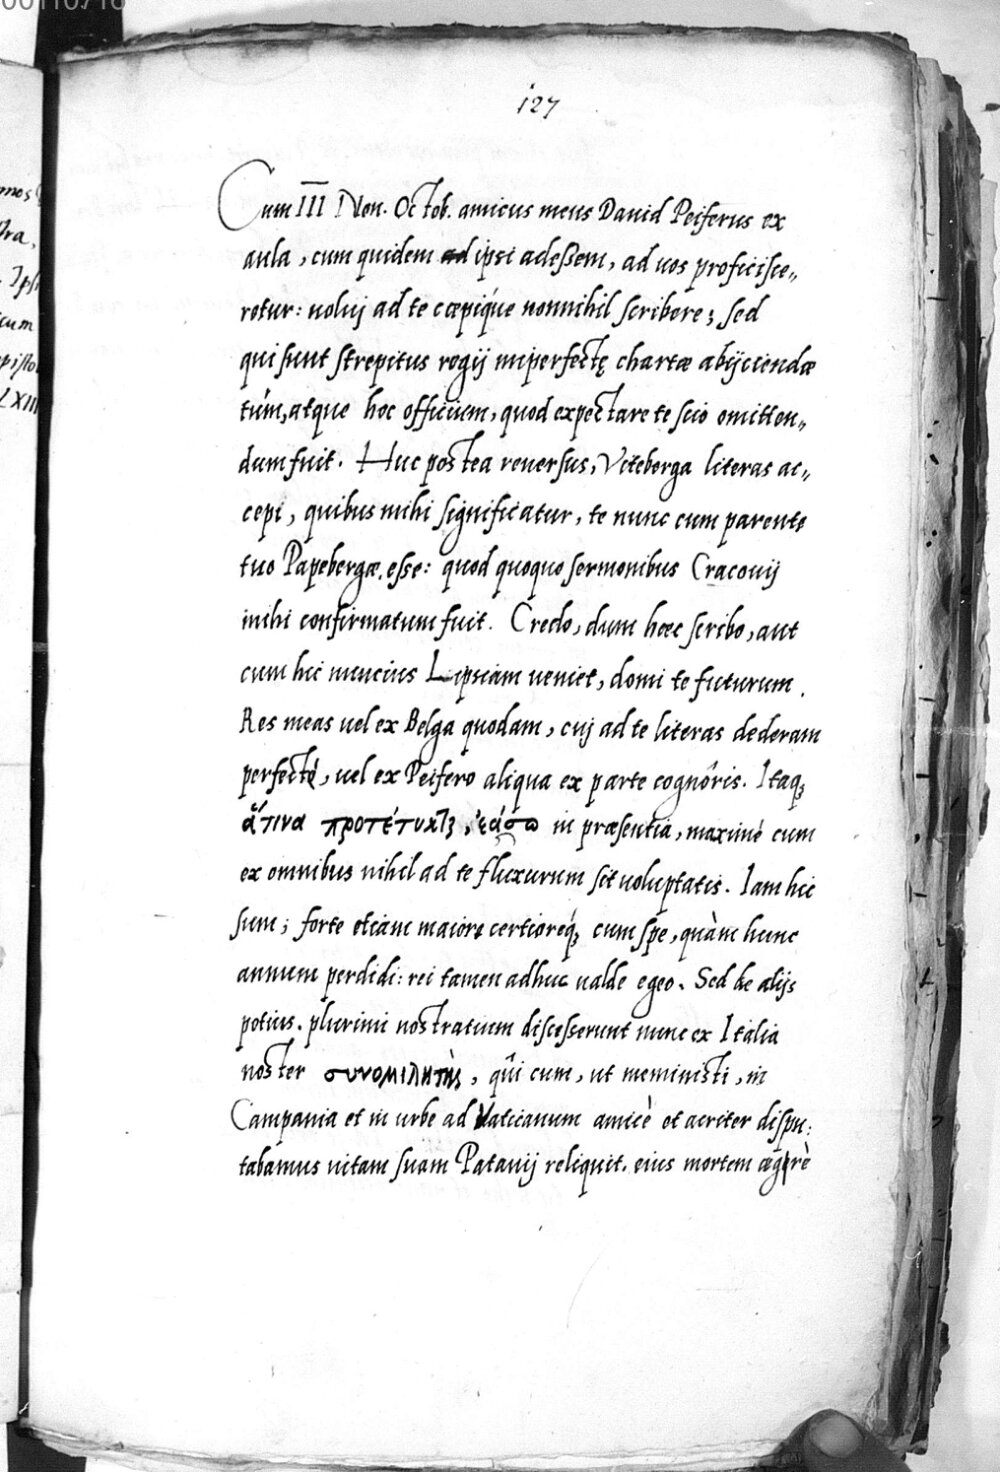 127
Cum III Non. Octob. amicus meus Dauid Peiferus ex
aula, cum quidem ad ipsi adessem, ad uos proficisce„
retur: uoluj ad te cœpiq́ue nonnihil scribere; sed
qui sunt strepitus regij imperfectę chartæ abijciendæ
túm, atque hoc officium, quod expectare te scio omitten„
dum fuit. Huc postea reuersus, Viteberga literas ac„
cepi, quibus mihi significatur, te nunc cum parente
tuo Papebergæ esse: quod quoque sermonibus Cracouij
mihi confirmatum fuit. Credo, dum hæc scribo, aut
cum hic nuncius Lipsiam ueniet, domi te futurum.
Res meas uel ex Belga quodam, cuj ad te literas dederam
perfecté, uel ex Peifero aliqua ex parte cognôris. Itaq;
ἅτινα προτέτυκται, ἐάσω in præsentia, maximè cum
ex omnibus nihil ad te fluxurum sit uoluptatis. Iam hic
sum; forte etiam maiore certioreq́; cum spe, quàm hunc
annum perdidi: rei tamen adhuc ualde egeo. Sed de alijs
potius. plurimi nostratium discesserunt nunc ex Italia
noster συνομιλητὴς, quî cum, ut meministi, in
Campania et in urbe ad Vaticanum amicè et acriter dispu:
tabamus uitam suam Patauij reliquit. eius mortem ægrè